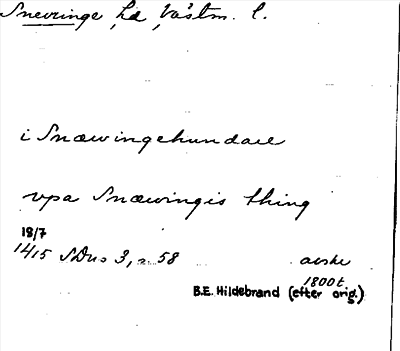 Snevringe hd, Västm. l.
i Snæwingehundare
vpa Snæwingis thing
18/7
1415 SDns 3, s. 58
avskr
1800 t.
B.E. Hildebrand (efter orig.)